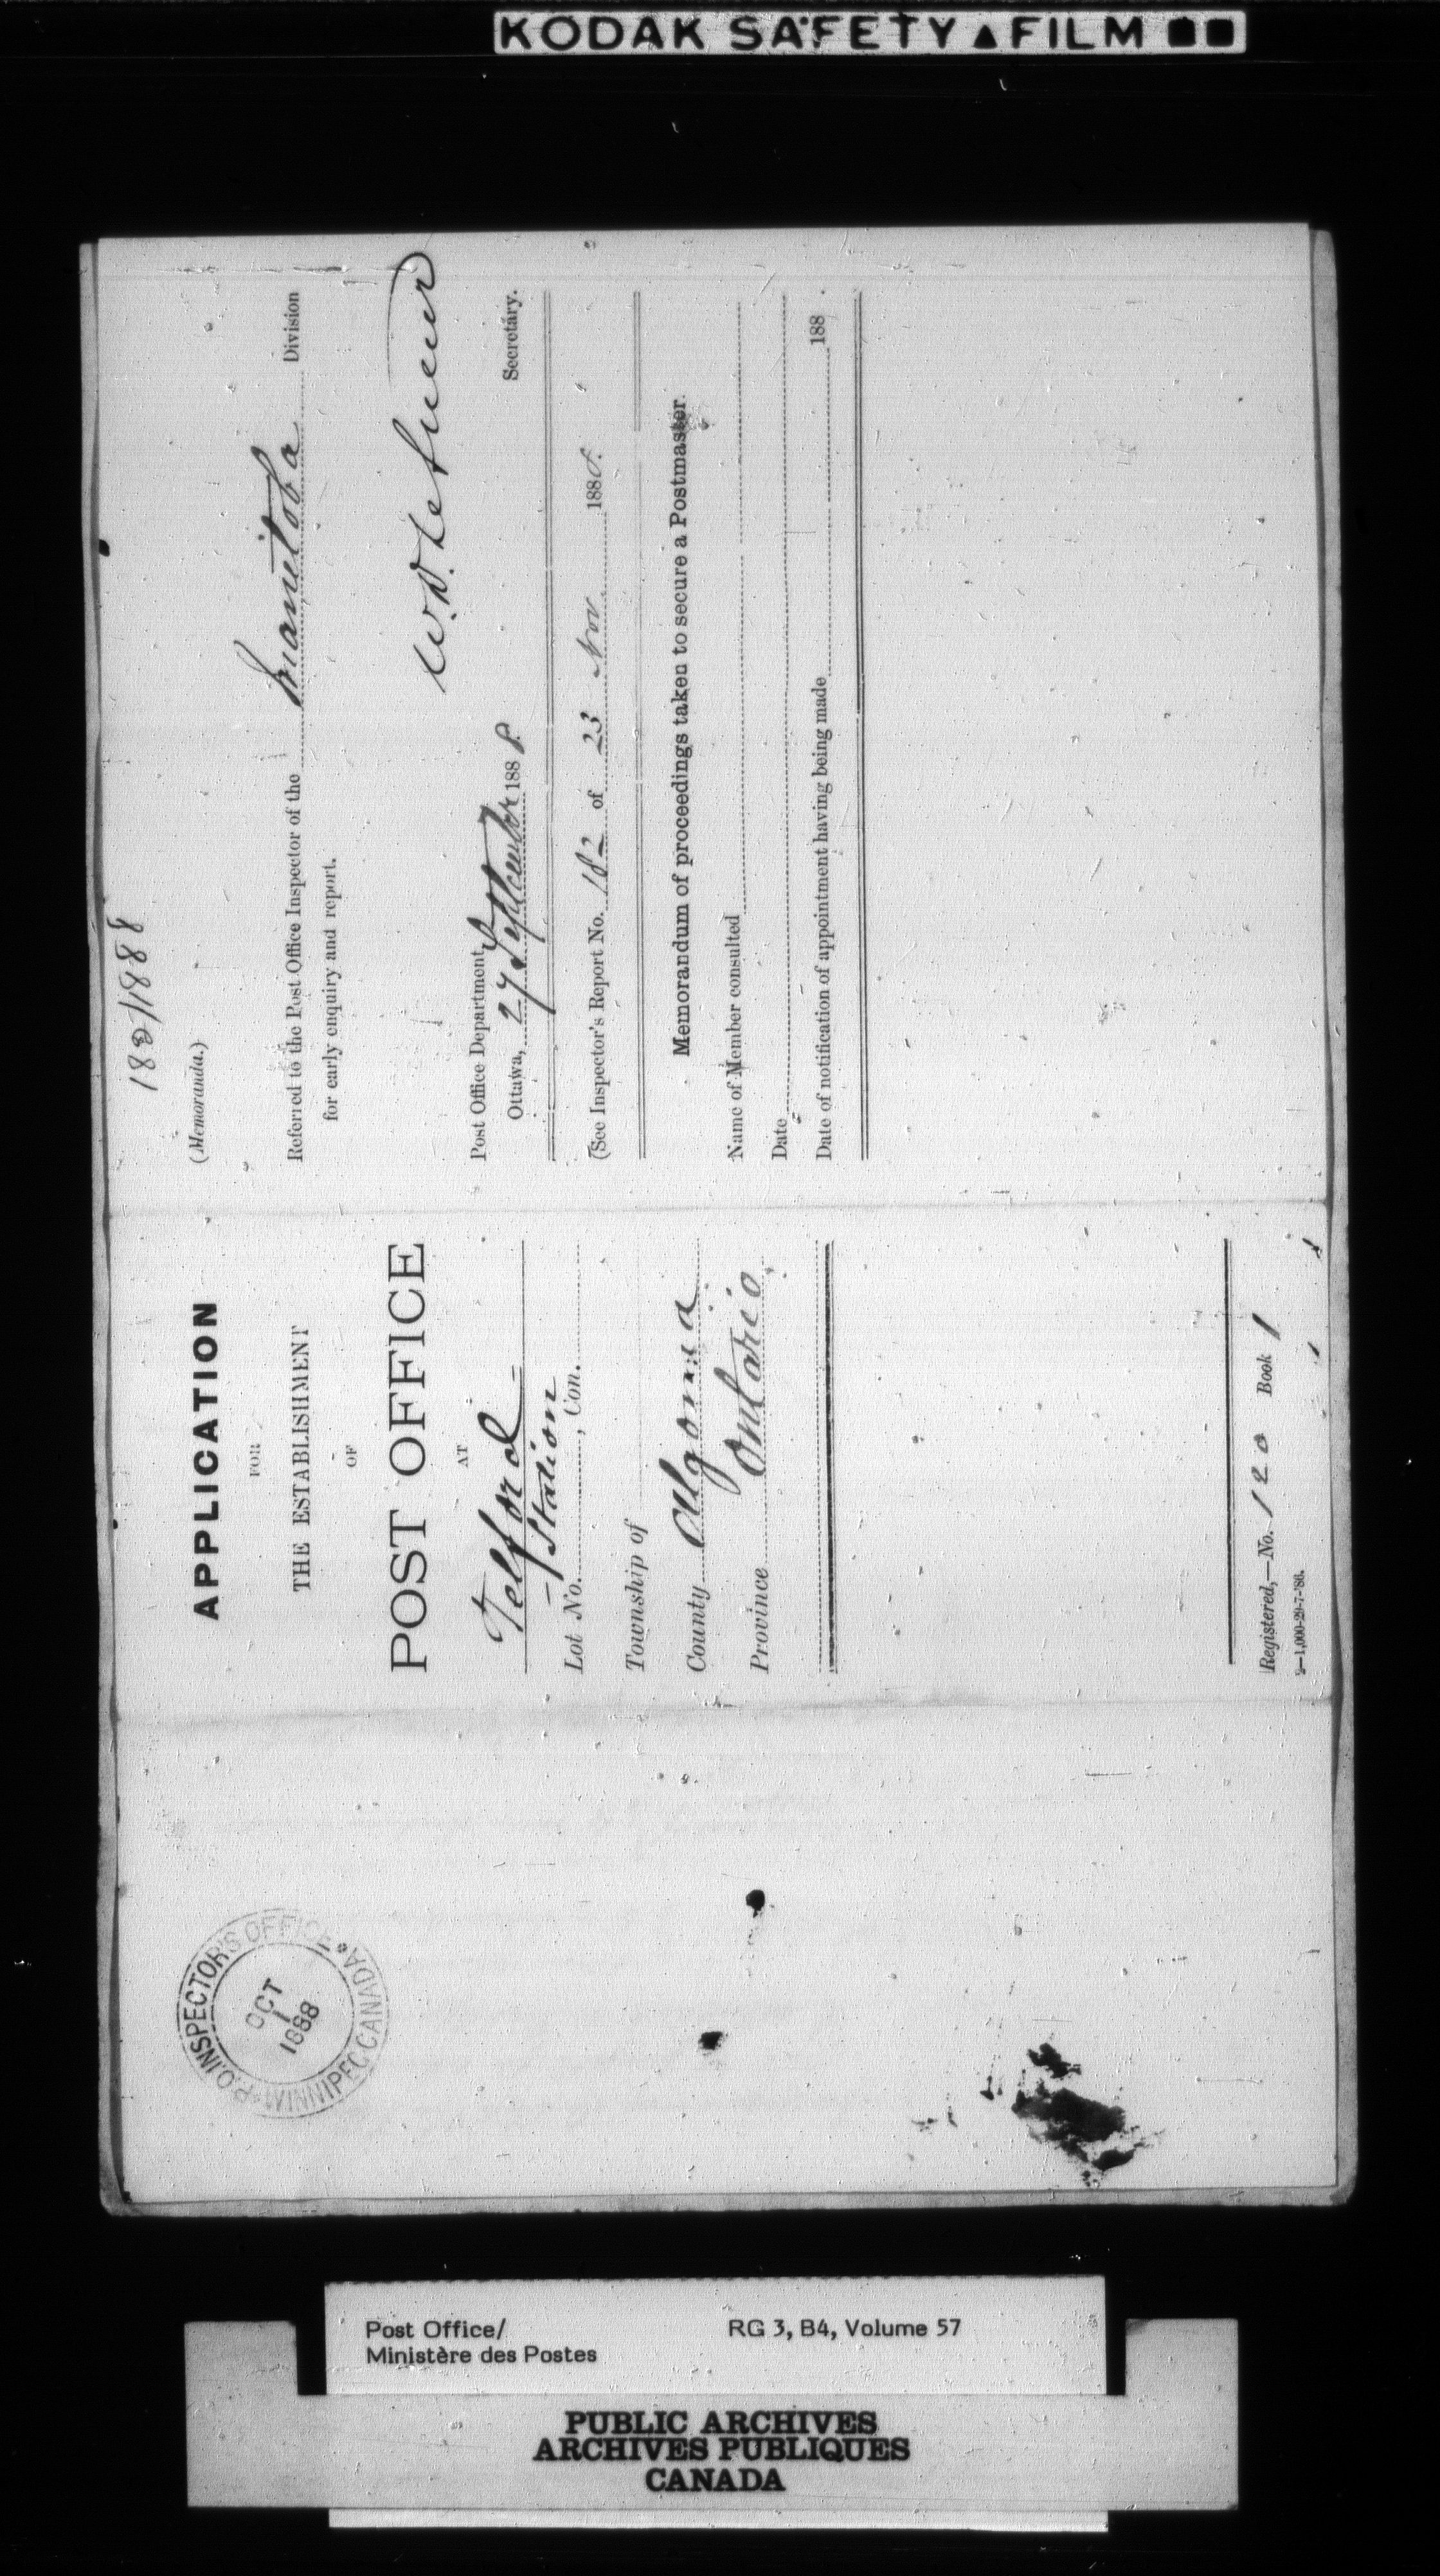 KODAK SAFETY ▲ FILM
182/1888
(Memoranda.)
Referred to the Post Office Inspector of the Manitoba Division
for early enquiry and report.
W. D. LeSueur
Secretary.
Post Office Department,
Ottawa, 27 September 1888.
(See Inspector's Report No. 182 of 23 Nov. 1888.
Memorandum of proceedings taken to secure a Postmaster.
Name of Member consulted
Date
Date of notification of appointment having being made 188 .
APPLICATION
FOR
THE ESTABLISHMENT
OF
POST OFFICE
AT
Telford
- Station -
Lot No. , Con.
Township of
County Algoma
Province Ontario
Registered,—No. 120 Book 1
2—1,000-29-7-'86.
P.O. INSPECTOR'S OFFICE
OCT
1
1888
WINNIPEG CANADA
Post Office/
Ministère des Postes
RG 3, B4, Volume 57
PUBLIC ARCHIVES
ARCHIVES PUBLIQUES
CANADA